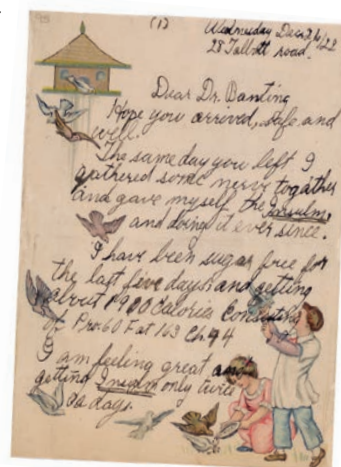 (1)
28 Talbott road.
Dear Dr. Banting
Hope you arrived, safe and
well.
The same day you left I
gathered some nerve togather
and gave myself the Insulin,
and doing it ever since.
I have been sugar free for
the last five days and getting
about 1900 Calories Consisting
of Pro 60 Fat 163 Ch. 94
I am feeling great and
getting Insulin only twice
a day.